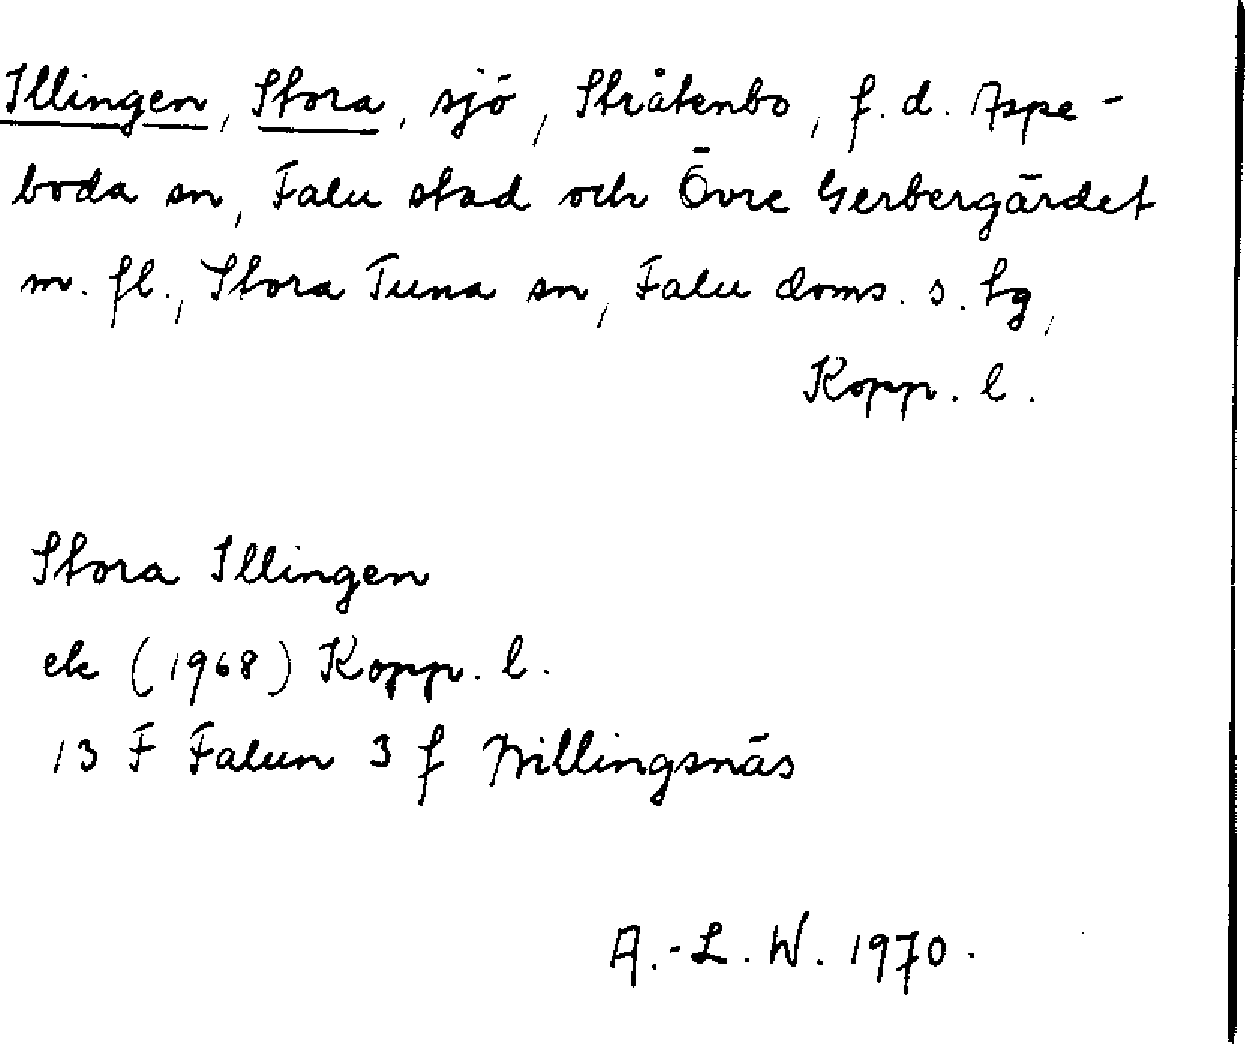 Illingen, Stora, sjö, Stråtenbo, f. d. Aspe-
boda sn, Falu stad och Övre Gerbergärdet
m. fl., Stora Tuna sn, Falu doms. s. tg,
Kopp. l.
Stora Illingen
ek (1968) Kopp. l.
13 F Falun 3 f Millingsnäs
A.-L. W. 1970.